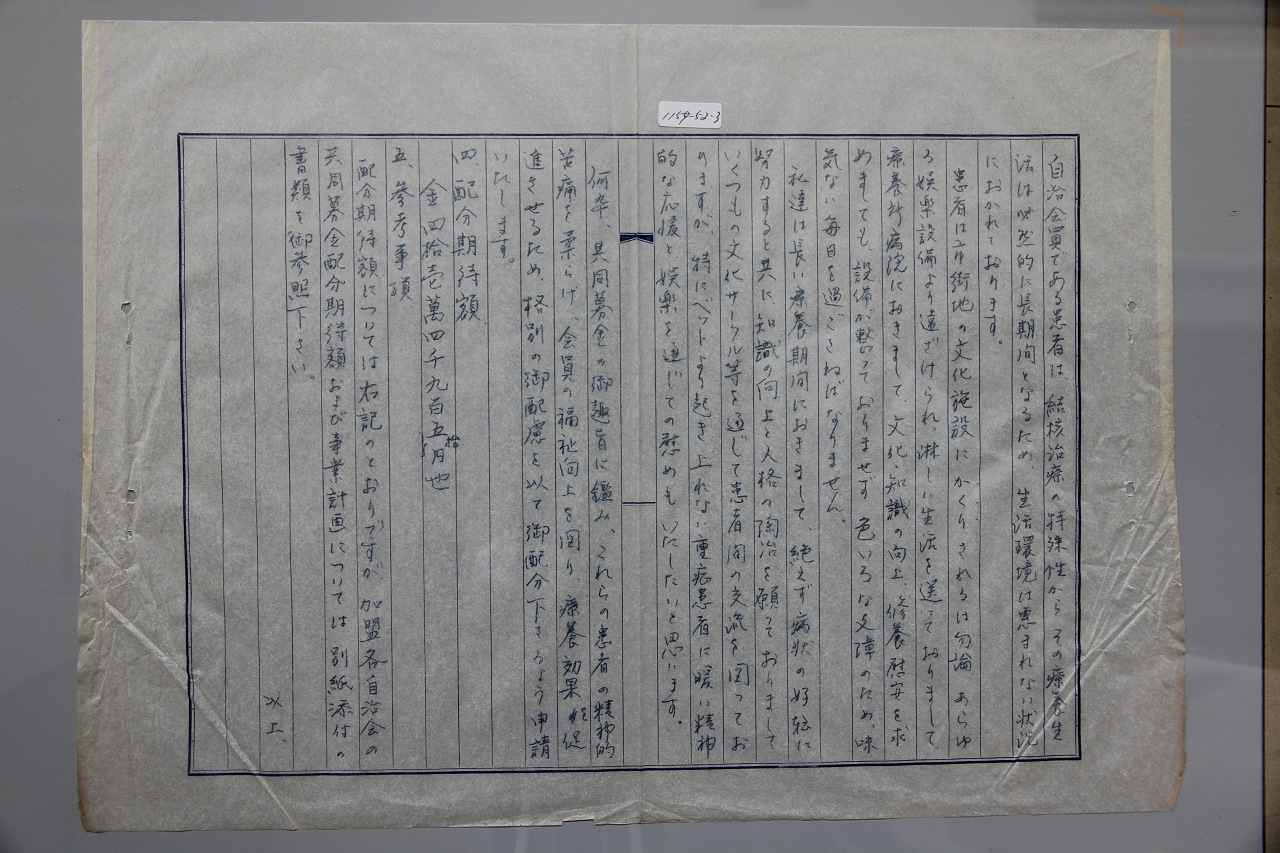 1154-52-3
自治会員である患者は、結核治療の特殊性からその療養生
活は必然的に長期間となるため、生活環境は恵まれない状況
におかれております。
患者は市街地の文化施設にかくりされるは勿論あらゆ
る娯楽設備より遠ざけられ、淋しい生活を送っておりまして、
療養所病院におきまして、文化、知識の向上、修養慰安を求
めましても、設備が整っておりませず色いろな支障のため、味
気ない毎日を過ごさねばなりません。
私達は長い療養期間におきまして、絶えず病状の好転に
努力すると共に、知識の向上と人格の陶冶を願っておりまして
いくつもの文化サークル等を通じて患者間の交流を図ってお
りますが、特にベットより起き上れない重症患者に暖い精神
的な応援と娯楽を通じての慰めもいたしたいと思います。
何卒、共同募金の御趣旨に鑑み、これらの患者の精神的
苦痛を柔らげ、会員の福祉向上を図り、療養効果を促
進させるため、格別の御配慮を以て御配分下さるよう申請
いたします。
四、配分期待額
金四拾壱萬四千九百五拾円也
五、参考事項
配分期待額については右記のとおりですが加盟各自治会の
共同募金配分期待額および事業計画については別紙添付の
書類を御参照下さい。
以上、